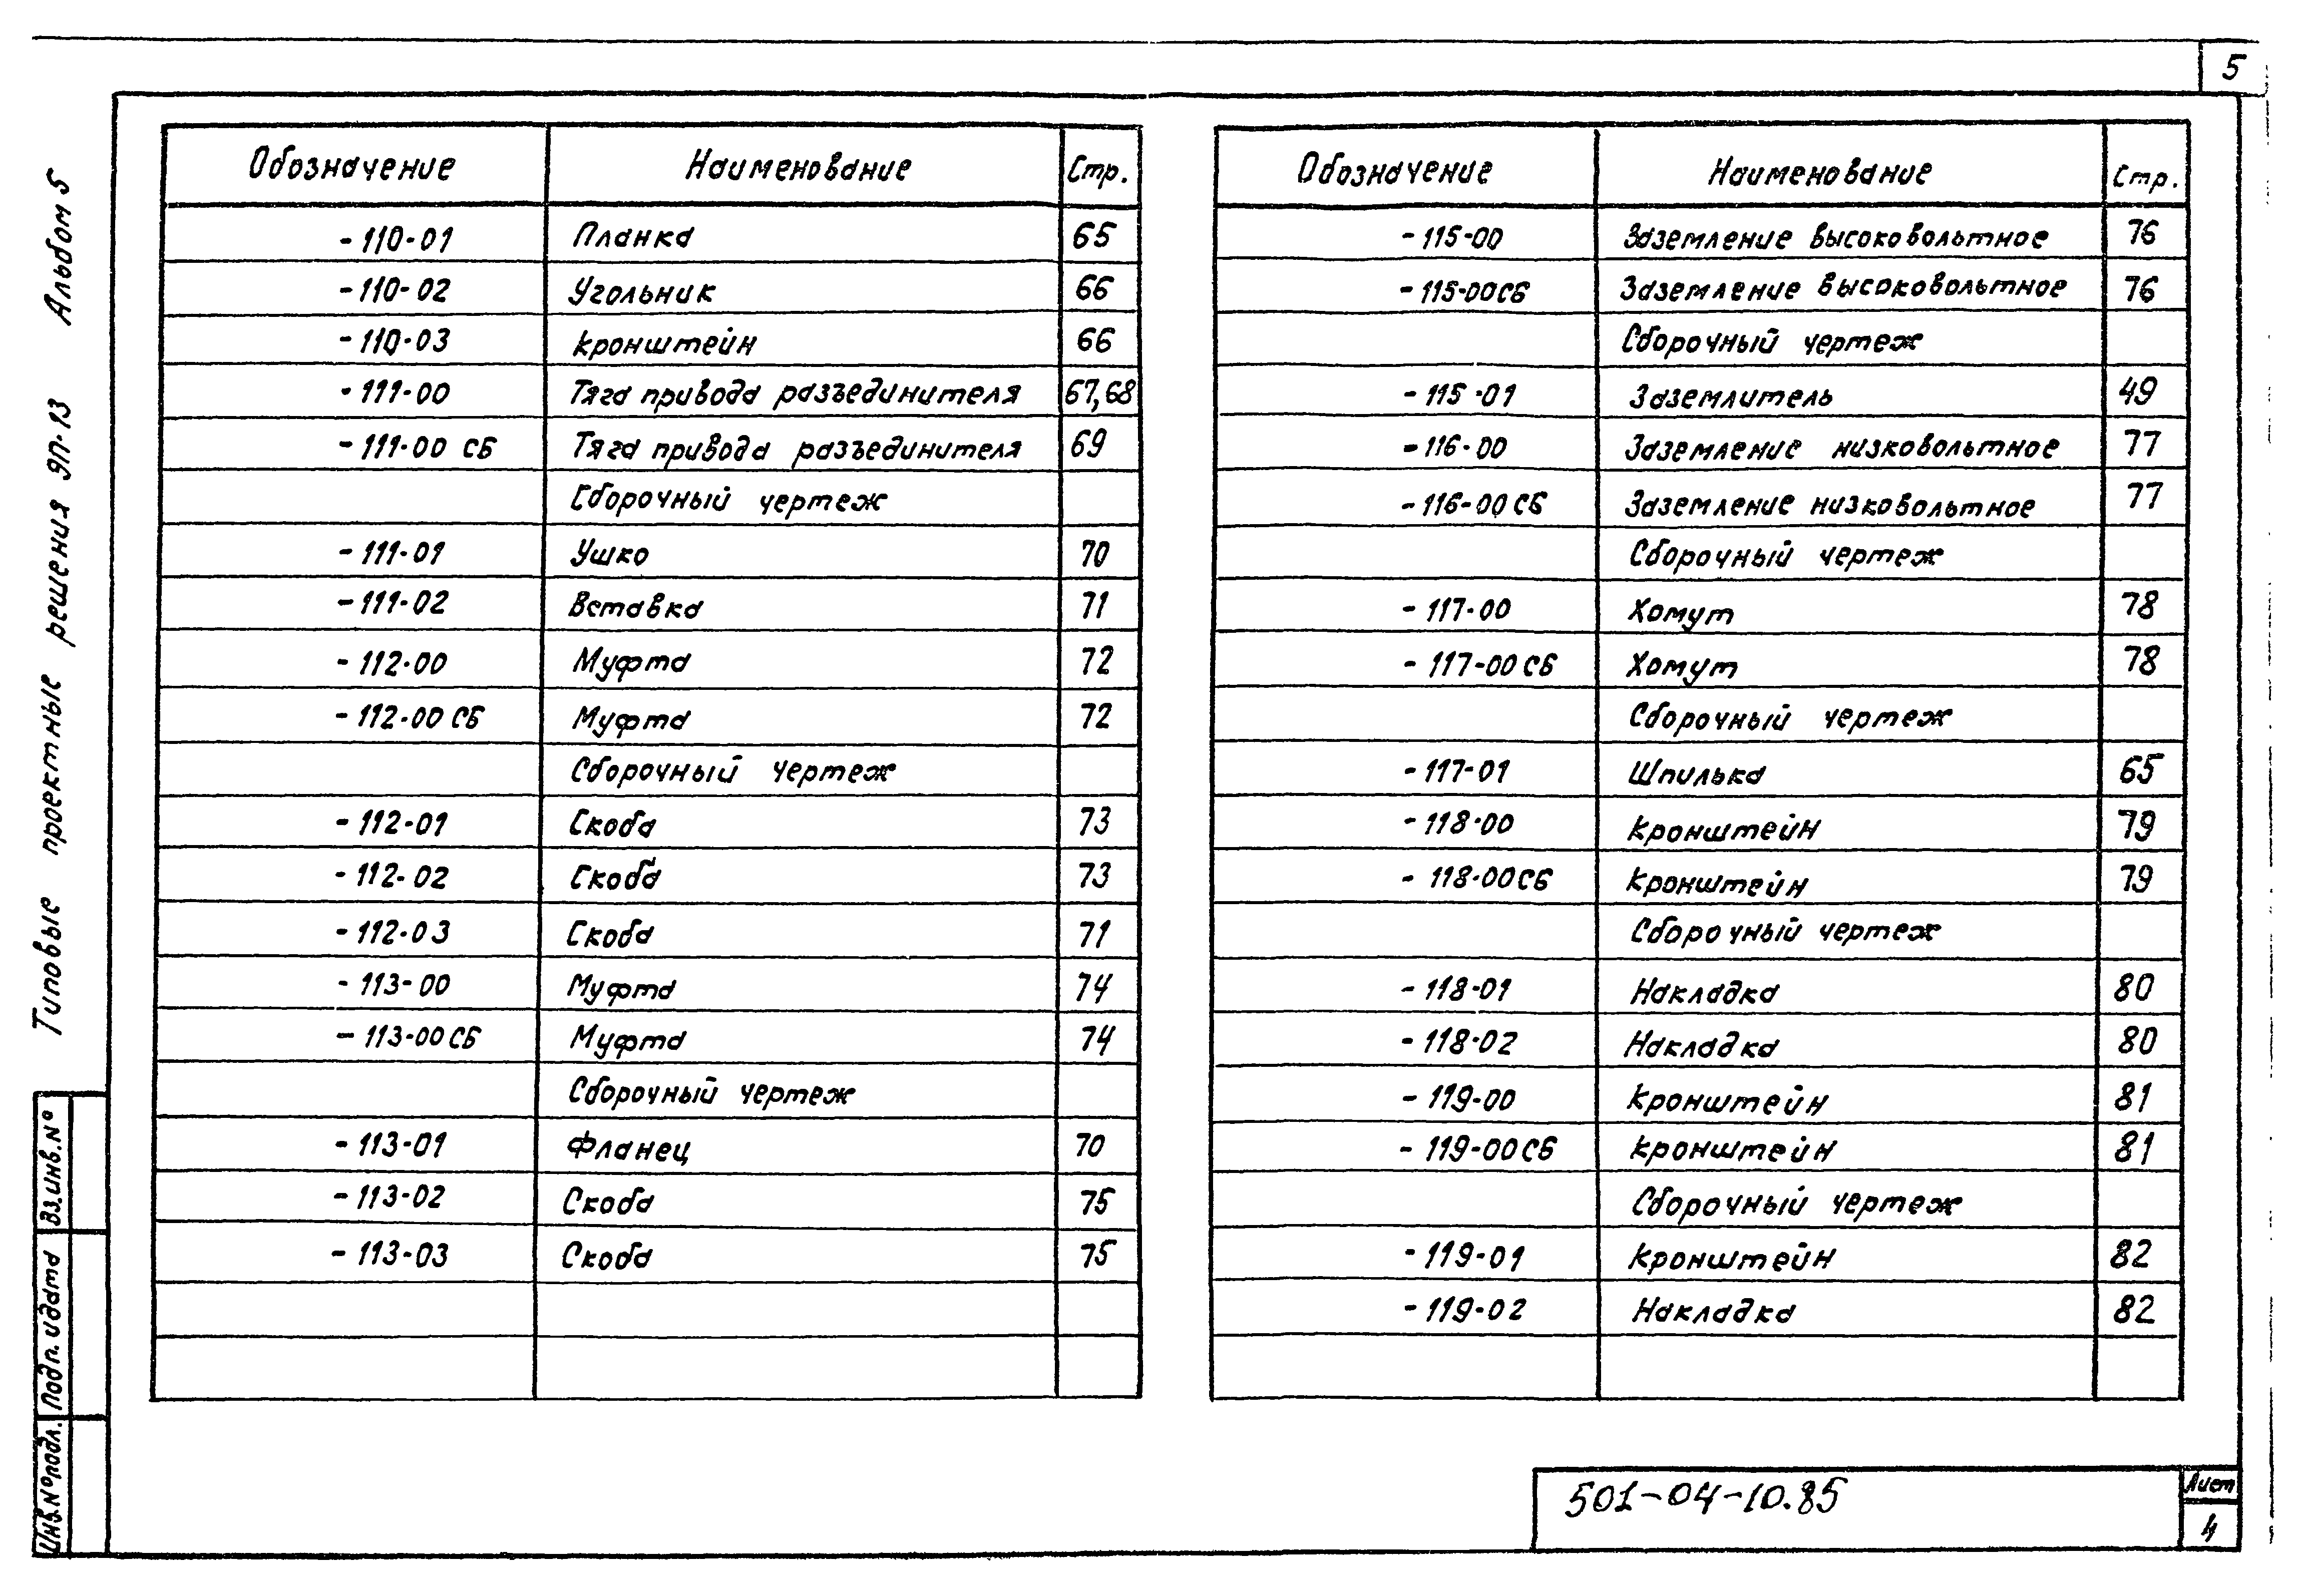 5
Обозначение Наименование Стр.
-110-01 Планка 65
-110-02 Угольник 66
-110-03 кронштейн 66
-111-00 Тяга привода разъединителя 67,68
-111-00 СБ Тяга привода разъединителя 69
Сборочный чертеж
-111-01 Ушко 70
-111-02 Вставка 71
-112-00 Муфта 72
-112-00 СБ Муфта 72
Сборочный чертеж
-112-01 Скоба 73
-112-02 Скоба 73
-112-03 Скоба 71
-113-00 Муфта 74
-113-00 СБ Муфта 74
Сборочный чертеж
-113-01 Фланец 70
-113-02 Скоба 75
-113-03 Скоба 75
Обозначение Наименование Стр.
-115-00 Заземление высоковольтное 76
-115-00СБ Заземление высоковольтное 76
Сборочный чертеж
-115-01 Заземлитель 49
-116-00 Заземление низковольтное 77
-116-00 СБ Заземление низковольтное 77
Сборочный чертеж
-117-00 Хомут 78
-117-00 СБ Хомут 78
Сборочный чертеж
-117-01 Шпилька 65
-118-00 кронштейн 79
-118-00СБ кронштейн 79
Сборочный чертеж
-118-01 Накладка 80
-118-02 Накладка 80
-119-00 кронштейн 81
-119-00СБ кронштейн 81
Сборочный чертеж
-119-01 кронштейн 82
-119-02 Накладка 82
Типовые проектные решения ЭП-13 Альбом 5
Инв.№подл. Подп. и дата Вз.инв.№
501-04-10.85
Лист
4